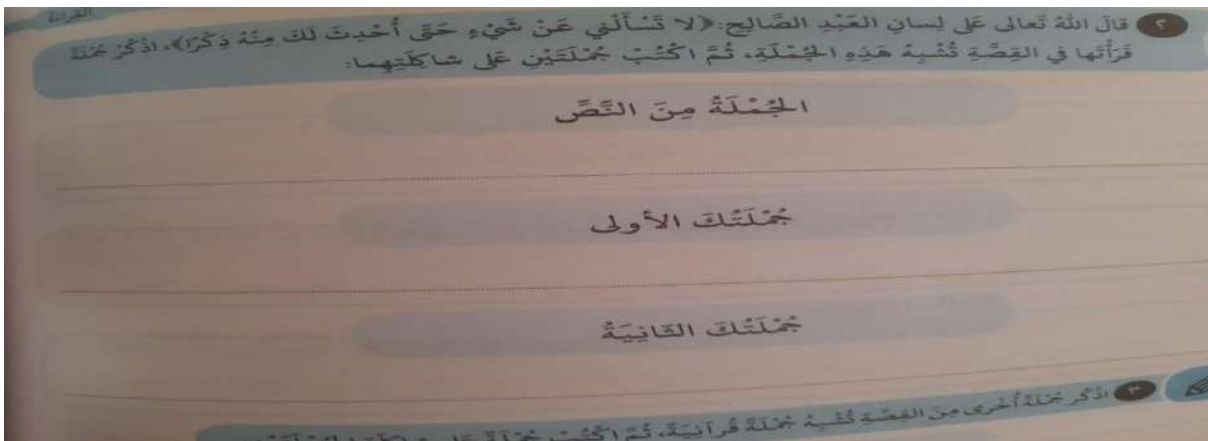 القراءة
٢ قالَ اللهُ تَعالى عَلى لِسانِ العَبْدِ الصَّالِحِ: ﴿لا تَسْأَلْنِي عَنْ شَيْءٍ حَتَّى أُحْدِثَ لَكَ مِنْهُ ذِكْرًا﴾، اذْكُرْ جُمْلَةً
قَرَأْتَها في القِصَّةِ تُشْبِهُ هَذِهِ الجُمْلَةِ، ثُمَّ اكْتُبْ جُمْلَتَيْنِ عَلى شاكِلَتِهِما:
الجُمْلَةُ مِنَ النَّصَّ
جُمْلَتُكَ الأولى
جُمْلَتُكَ الثَّانِيَةُ
٣ اذْكُر جُمْلَةً أُخرى مِنَ القِصَّةِ تُشْبِهُ جُمْلَةً قُرآنِيَّةً، ثُمَّ اكْتُبْ جُمْلَةً عَلى